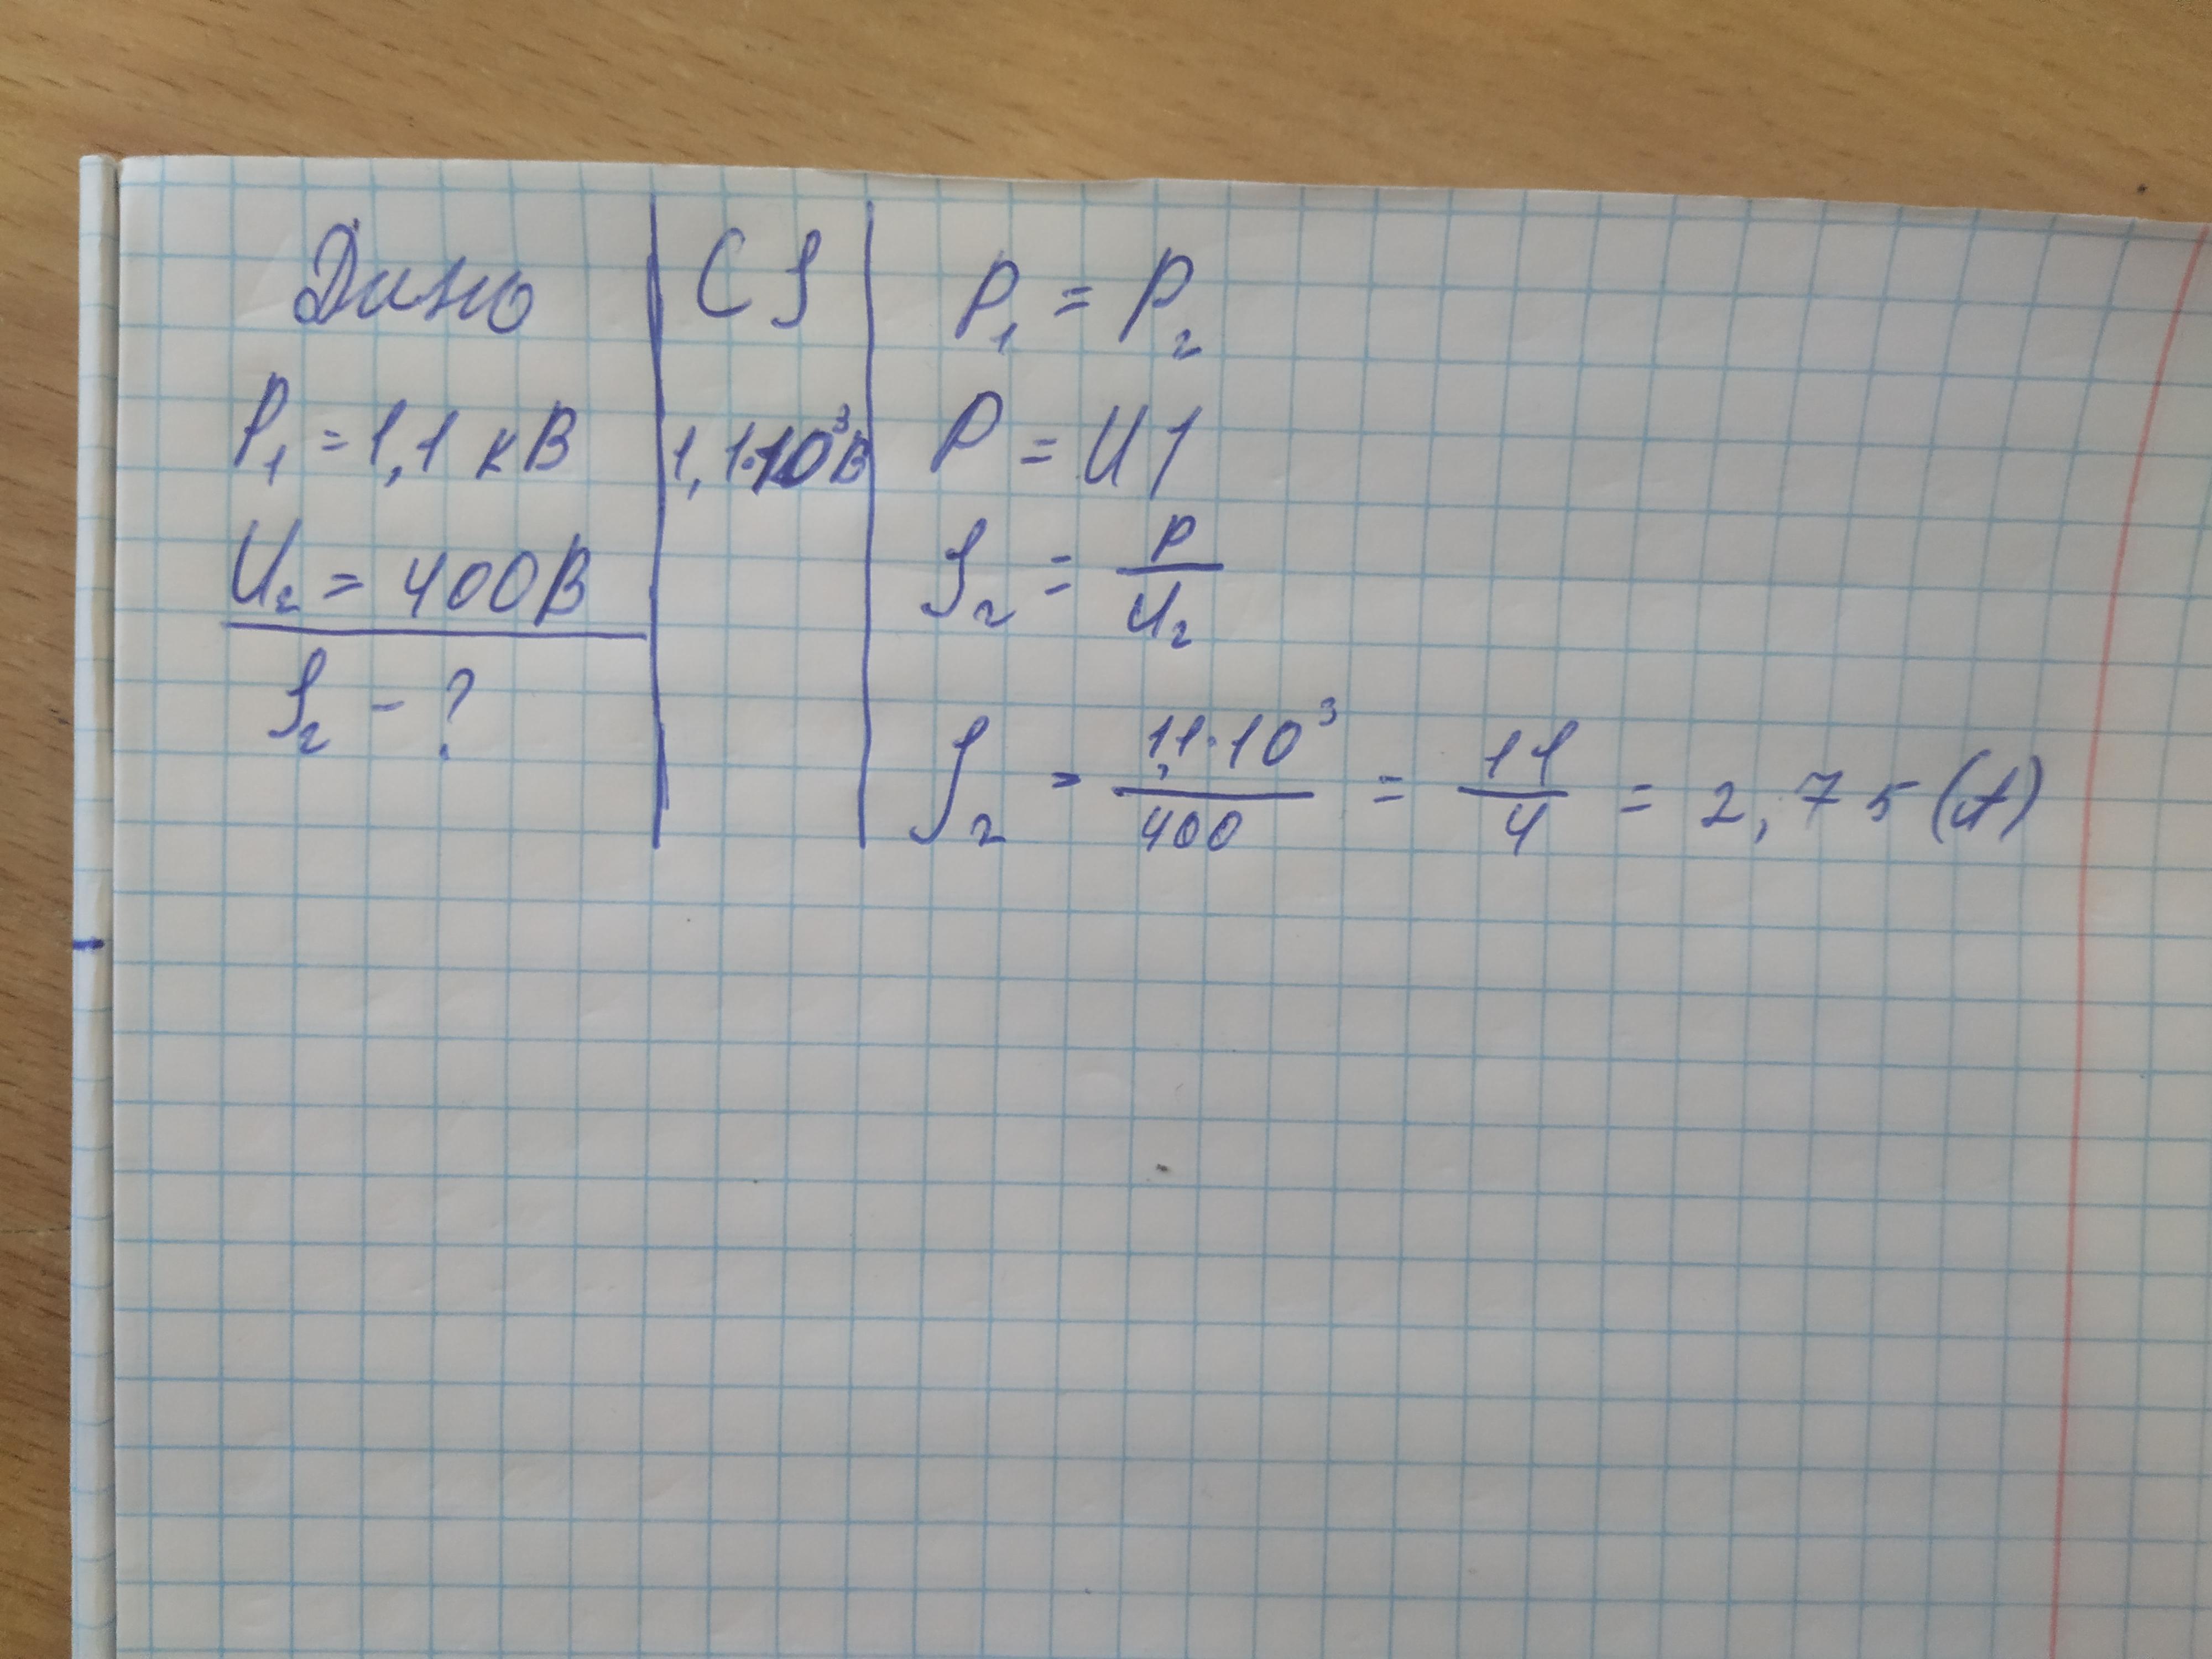 Дано
P₁ = 1,1 кВ
U₂ = 400В
I₂ - ?
СI
1,1·10³В
P₁ = P₂
P = UI
I₂ = P/U₂
I₂ = 1,1·10³/400 = 11/4 = 2,75 (A)